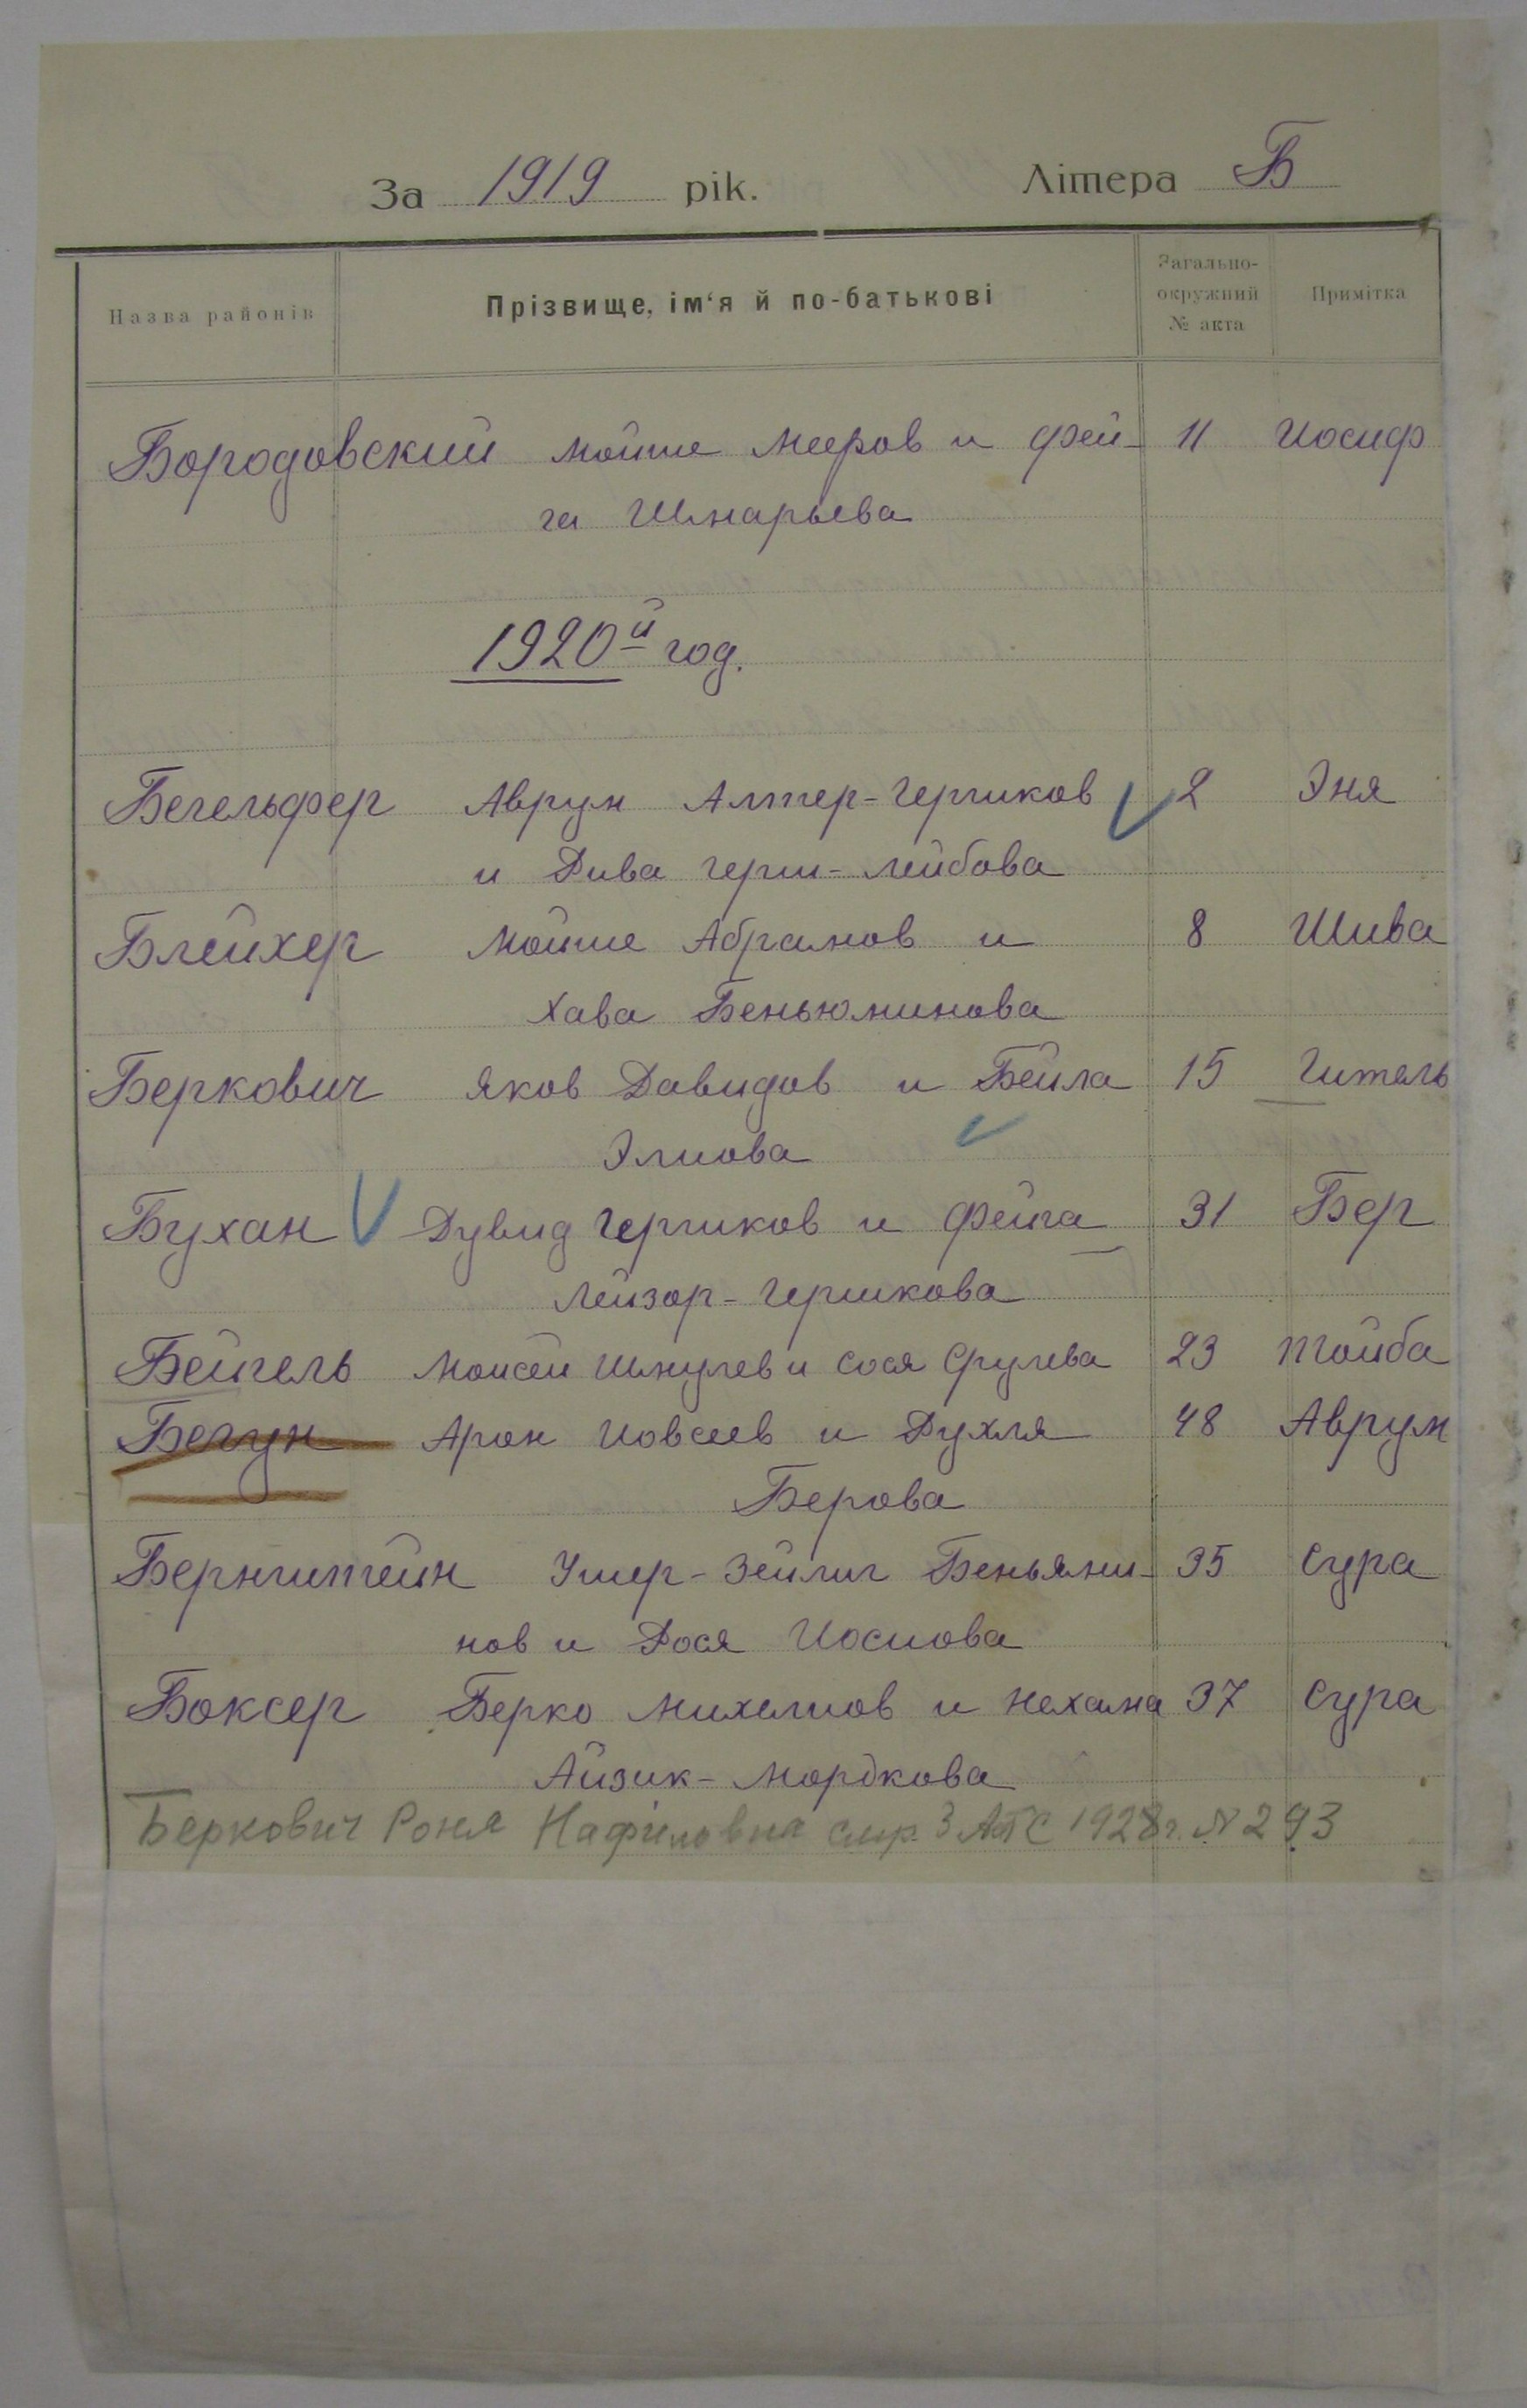 За 1919 рік. Літера Б
Назва районів Прізвище, ім‘я й по-батькові Загально-окружний № акта Примітка
Бородовский Мойше Мееров и Фей- 11 Иосиф
га Шмарьева
1920й год.
Бегельфер Аврум Алтер-Гершков 2 Эня
и Рива Герш-Лейбова
Блейхер Мойше Абрамов и 8 Шива
Хава Беньюминова
Беркович Яков Давидов и Бейла 15 Гитель
Элиова
Бухан Дувид Гершков и Фейга 31 Бер
Лейзор-Гершкова
Бейгель Моисей Шмулев и Сося Срулева 23 Тойба
Бегун Арон Иовсеев и Рухля 48 Аврум
Берова
Бернштейн Ушер-Зейлиг Беньями- 35 Сура
нов и Рося Иосиова
Боксер Берко Михелиов и Нехама 37 Сура
Айзик-Мордкова
Беркович Роня 1928г. N 293